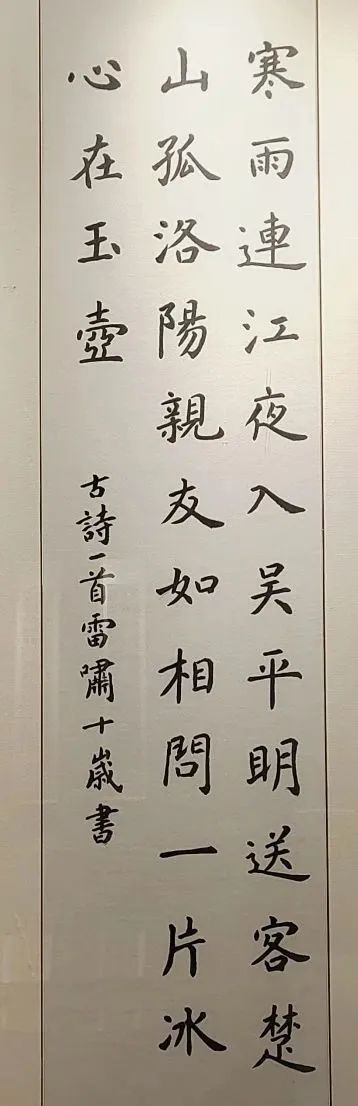 寒雨連江夜入吴平明送客楚
山孤洛陽親友如相問一片冰
心在玉壺
古詩一首雷嘯十歲書